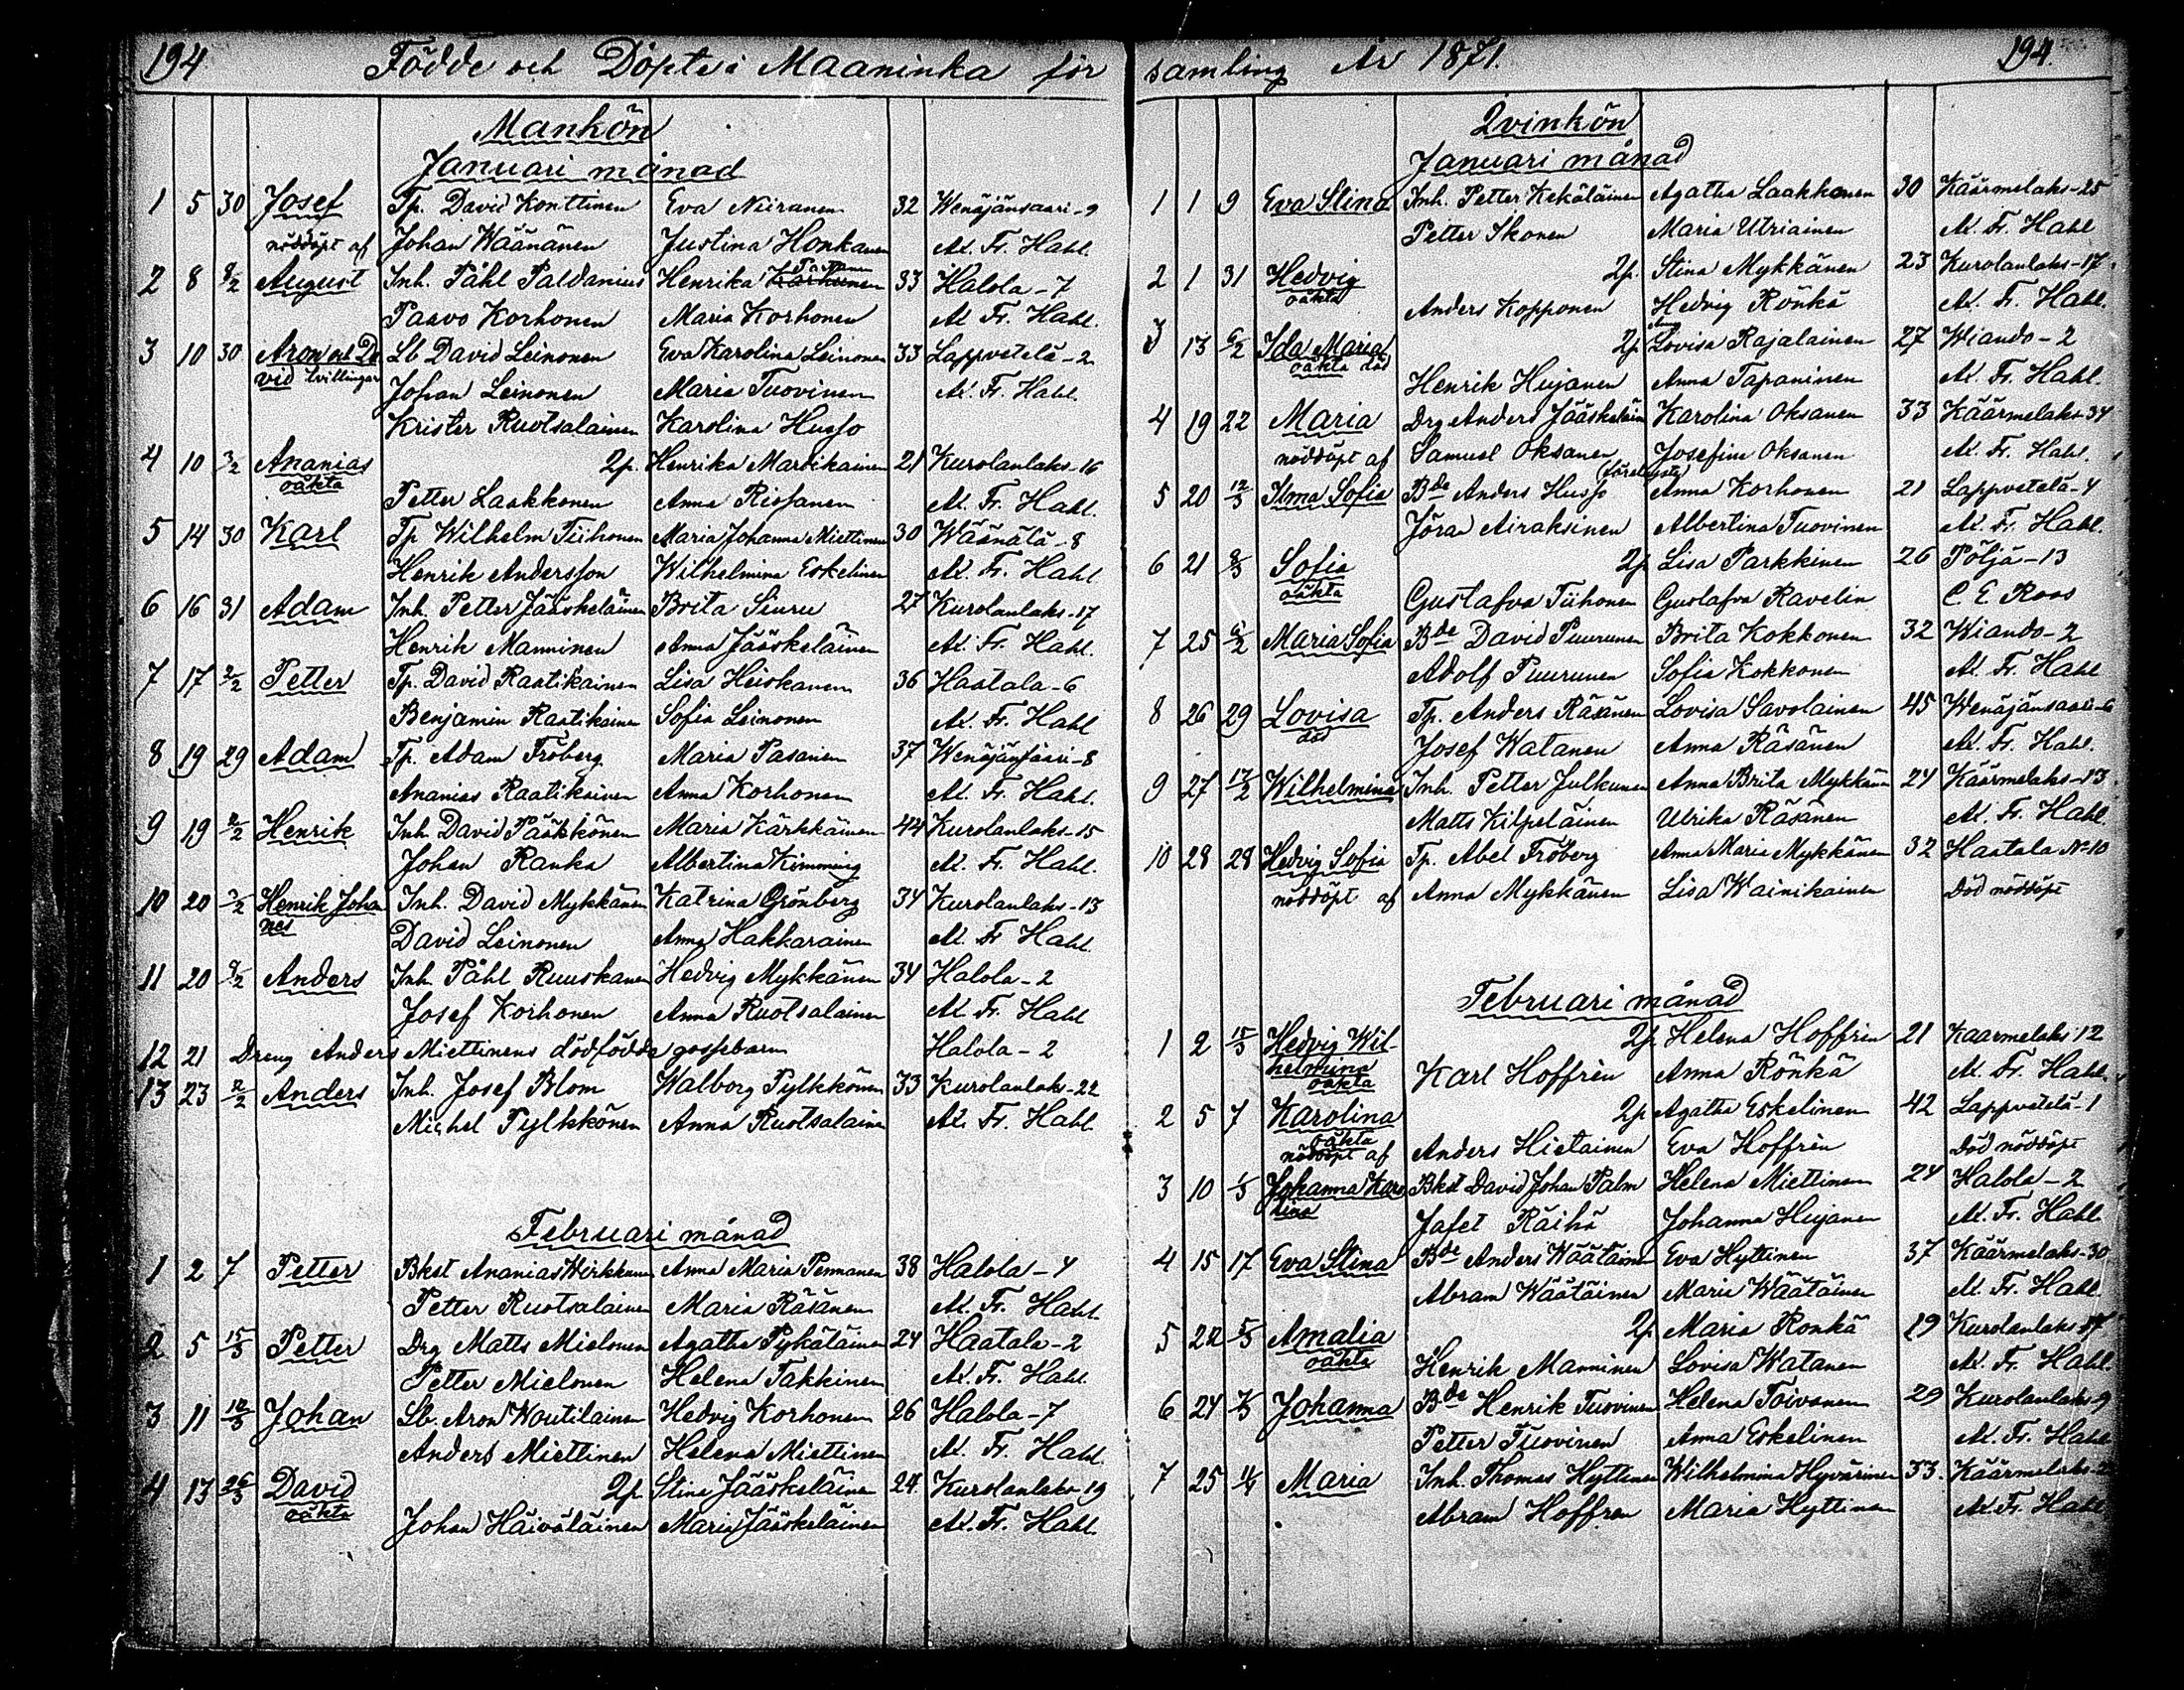 194 Födde och Döpte i Maaninka för
Mankön
Januari månad
1 5 30 Josef Tp. David Konttinen Eva Niiranen 32 Wenäjänsaari-9
nöddöpt af Johan Wäänänen Justina Honkanen Al. Fr. Hahl.
2 8 8/2 August Inh. Påhl Paldanius Henrika 33 Halola-7
Paavo Korhonen Maria Korhonen Al Fr. Hahl.
3 10 30 Aron och Da Lb David Leinonen Eva Karolina Leinonen 33 Lappvetelä-2
vid tvillingar Johan Leinonen Maria Tuovinen Al. Fr. Hahl.
Krister Ruotsalainen Karolina Husso
4 10 3/2 Ananias 2p. Henrika Martikainen 21 Kurolanlaks-16
oäkta Petter Laakkonen Anna Rissanen Al. Fr. Hahl.
5 14 30 Karl Tp Wilhelm Tiihonen Maria Johanna Miettinen 30 Wäänälä-8
Henrik Andersson Wilhelmina Eskelinen Al. Fr. Hahl
6 16 31 Adam Inh. Petter Jääskeläinen Brita Siuru 27 Kurolanlaks-17
Henrik Manninen Anna Jääskeläinen Al. Fr. Hahl.
7 17 2/2 Petter Tp. David Raatikainen Lisa Heiskanen 36 Haatala-6
Benjamin Raatikainen Sofia Leinonen Al. Fr. Hahl
8 19 29 Adam Tp. Adam Fröberg Maria Pasanen 37 Wenäjänsaari-8
Ananias Raatikainen Anna Korhonen Al. Fr. Hahl.
9 19 Henrik Inh David Pääkkönen Maria Kärkkäinen 44 Kurolanlaks-15
Johan Ranka Albertina Kimming Al. Fr. Hahl.
10 20 Henrik Johan Inh. David Mykkänen Katrina Grönberg 34 Kurolanlaks-13
nes David Leinonen Anna Hakkarainen Al. Fr Hahl.
11 20 Anders Inh. Påhl Ruuskanen Hedvig Mykkänen 34 Halola-2
Josef Korhonen Anna Ruotsalainen Al Fr. Hahl
12 21 Dreng Anders Miettinens dödfödde gossebarn Halola-2
13 23 Anders Inh. Josef Blom Walborg Pylkkönen 33 Kurolanlaks-22
Michel Pylkkönen Anna Ruotsalainen Al. Fr. Hahl.
Februari månad
1 2 7 Petter Bkst Ananias Wirkkunen Anna Maria Pennanen 38 Halola-4
Petter Ruotsalainen Maria Räsänen Al. Fr. Hahl.
2 5 15/3 Petter Drg Matts Mielonen Agatha Pykäläinen 24 Haatala-2
Petter Mielonen Helena Takkinen Al. Fr. Hahl.
3 11 12/3 Johan Lb. Aron Woutilainen Hedvig Korhonen 26 Halola-7
Anders Miettinen Helena Miettinen Al. Fr. Hahl.
4 13 26/3 David 2p. Stina Jääskeläinen 24 Kurolanlaks 19
oäkta Johan Häiväläinen Maria Jääskeläinen Al. Fr. Hahl.
samling År 1871. 194.
Qvinkön
Januari månad
1 1 9 Eva Stina Inh. Petter Kekäläinen Agatha Laakkonen 30 Käärmelaks-25
Petter Ikonen Maria Utriainen Al. Fr. Hahl
2 1 31 Hedvig 2p. Stina Mykkänen 23 Kurolanlaks-17
oäkta Anders Kopponen Hedvig Rönkä Al. Fr. Hahl.
3 13 6/2 Ida Maria 2p. Lovisa Rajalainen 27 Wiando-2
oäkta död Henrik Hujanen Anna Tapaninen Al. Fr. Hahl.
4 19 22 Maria Drg Anders Jääskeläinen Karolina Oksanen 33 Käärmelaks-34
nöddöpt af Samuel Oksanen Josefina Oksanen Al. Fr. Hahl.
5 20 12/3 Ilma Sofia Bde Anders Husso Anna Korhonen 21 Lappvetelä-4
Jöran Airaksinen Albertina Tuovinen Al. Fr. Hahl.
6 21 8/3 Sofia 2p Lisa Parkkinen 26 Pöljä-13
oäkta Gustafva Tiihonen Gustafva Ravelin C. E Roos
7 25 6/2 Maria Sofia Bde David Puurunen Brita Kokkonen 32 Wiando-2
Adolf Puurunen Sofia Kokkonen Al. Fr. Hahl
8 26 29 Lovisa Tp. Anders Räsänen Lovisa Savolainen 45 Wenäjänsaari-6
död Josef Watanen Anna Räsänen Al. Fr. Hahl.
9 27 12/2 Wilhelmina Inh. Petter Julkunen Anna Brita Mykkänen 24 Käärmelaks-13
Matts Kilpeläinen Ulrika Räsänen Al. Fr. Hahl.
10 28 28 Hedvig Sofia Tp. Abel Fröberg Anna Maria Mykkänen 32 Haatala No 10
nöddöpt af Anna Mykkänen Lisa Wainikainen Död nöddöpt
Februari månad
1 2 15/3 Hedvig Wil 2p. Helena Hoffrèn 21 Kaarmelaks 12
helmina oäkta Karl Hoffrèn Anna Rönkä Al. Fr. Hahl.
2 5 7 Karolina 2p Agatha Eskelinen 42 Lappvetelä-1
oäkta nöddöpt af Anders Hietainen Eva Hoffrèn Död nöddöpt
3 10 1/3 Johanna Karo Bkst David Johan Palm Helena Miettinen 24 Halola-2
lina Jafet Räihä Johanna Hujanen Al. Fr. Hahl.
4 15 17 Eva Stina Bde Anders Wäätäinen Eva Hyttinen 37 Käärmelaks-30
Abram Wäätäinen Maria Wäätäinen Al. Fr. Hahl
5 22 5/3 Amalia 2p. Maria Ronkä 29 Kurolanlaks 17
oäkta Henrik Manninen Lovisa Watanen Al. Fr. Hahl.
6 24 Johanna Bde Henrik Tuovinen Helena Toivanen 29 Kurolanlaks-9
Petter Tuovinen Anna Eskelinen Al. Fr. Hahl
7 25 Maria Inh. Thomas Hyttinen Wilhelmina Hyvärinen 33. Käärmelaks-2
Abram Hoffren Maria Hyttinen Al. Fr. Hahl